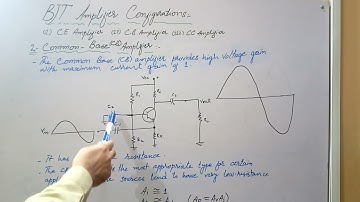 BJT Amplifier Configurations:-
(1) C.E Amplifier (2) C.B Amplifier (3) CC Amplifier
2- Common-Base (CB) Amplifier.
- The Common Base (CB) amplifier provides high voltage gain
with maximum current gain of 1.
Vcc
R1
Rc
C3
Vout
C2
Vin
RL
R2
RE
- It has resistance.
- The the most appropriate type for certain
sources tend to have very low-resistance
Ai ≅ 1
(Ap = Av Ai)